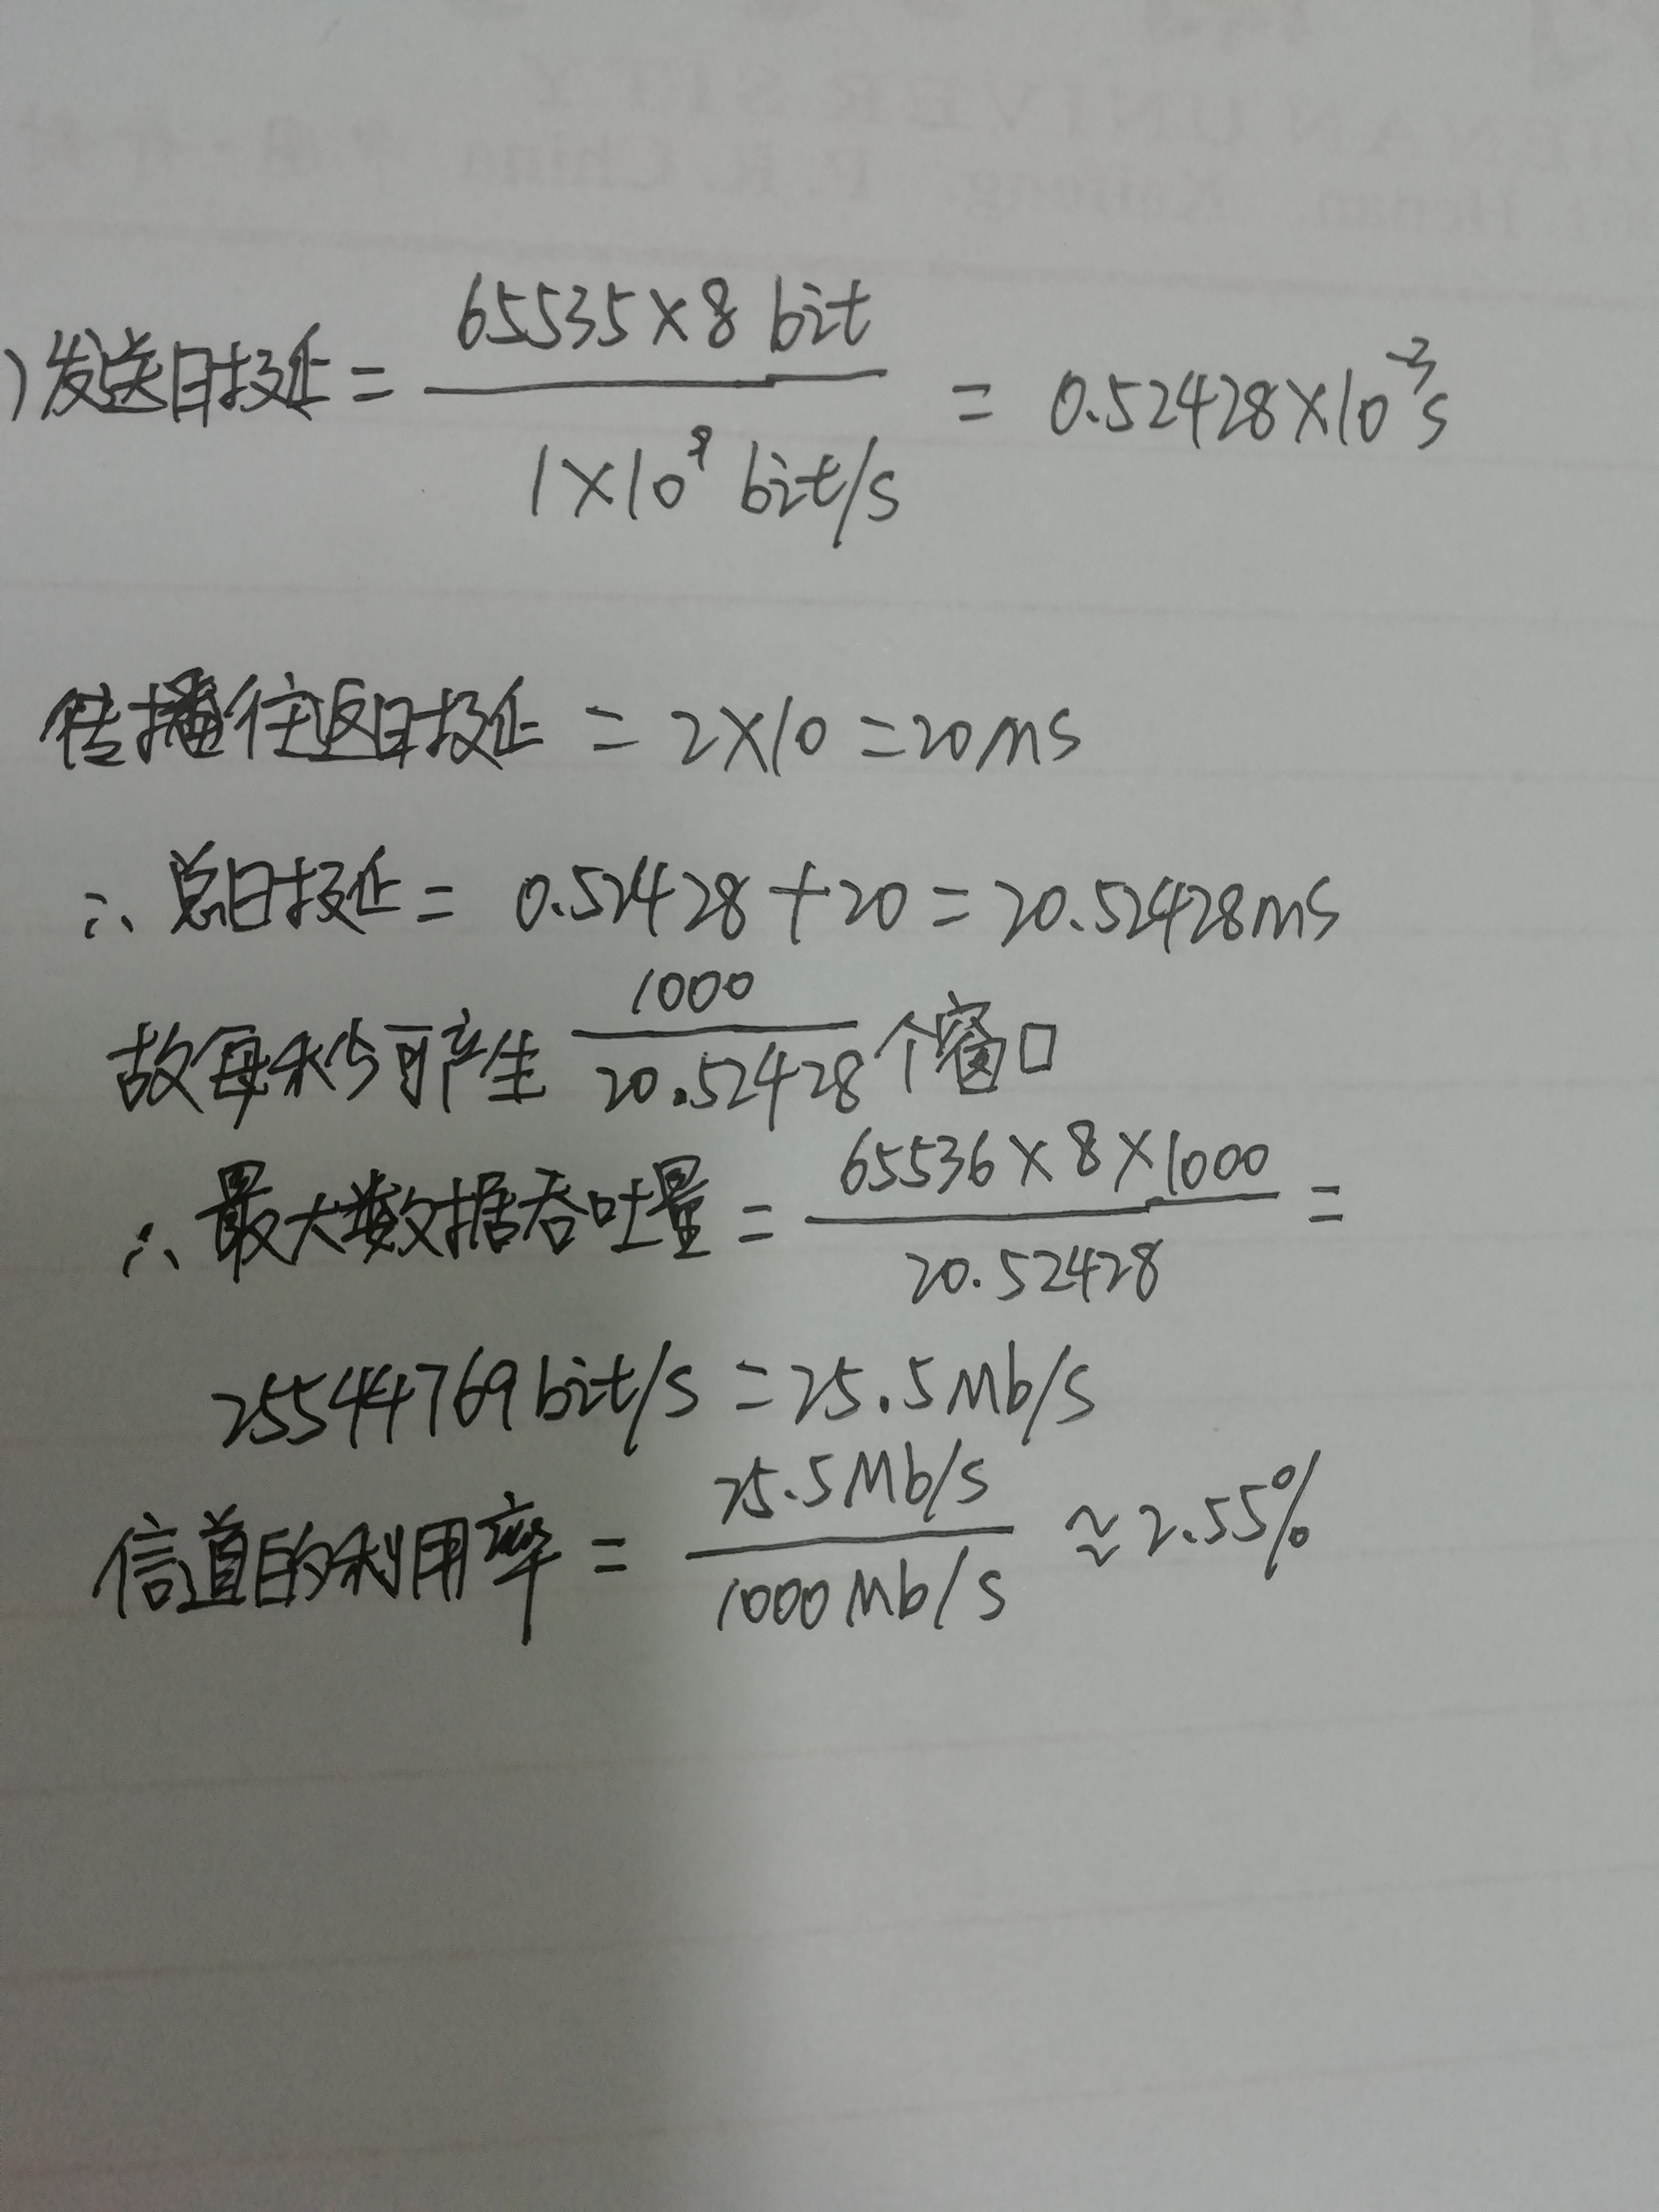 )发送时延 = 65535×8 bit / 1×10⁹ bit/s = 0.52428×10⁻³s
传播往返时延 = 2×10 = 20ms
∴ 总时延 = 0.52428 + 20 = 20.52428ms
故每秒可产生 1000 / 20.52428 个窗口
∴ 最大数据吞吐量 = 65536×8×1000 / 20.52428 =
25544769bit/s = 25.5Mb/s
信道的利用率 = 25.5Mb/s / 1000Mb/s ≈ 2.55%